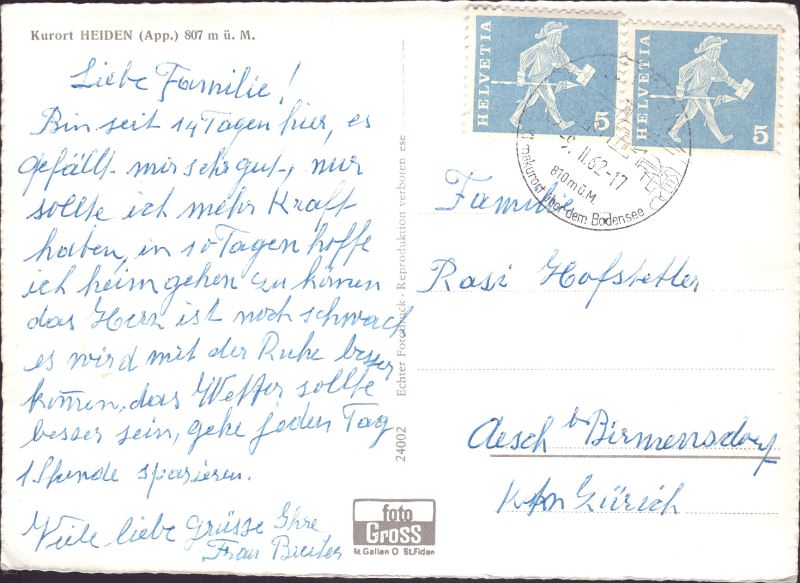 Kurort HEIDEN (App.) 807 m ü. M.
Liebe Familie!
Bin seit 14 Tagen hier, es
gefällt mir sehr gut, nur
sollte ich mehr Kraft
haben, in 10 Tagen hoffe
ich heim gehen zu können
das Herz ist noch schwach
es wird mit der Ruhe besser
kommen, das Wetter sollte
besser sein, gehe jeden Tag
1 Stunde spazieren.
Viele liebe grüsse Ihre
Frau Breiter
24002 Echter Fotodruck - Reproduktion verboten ese
foto
Gross
St. Gallen O St. Fiden
HELVETIA 5
HELVETIA 5
II. 62-17
810 m ü. M.
makurort über dem Bodensee
Familie
Rasi Hofstetter
Aesch b/ Birmensdorf
Ktn Zürich